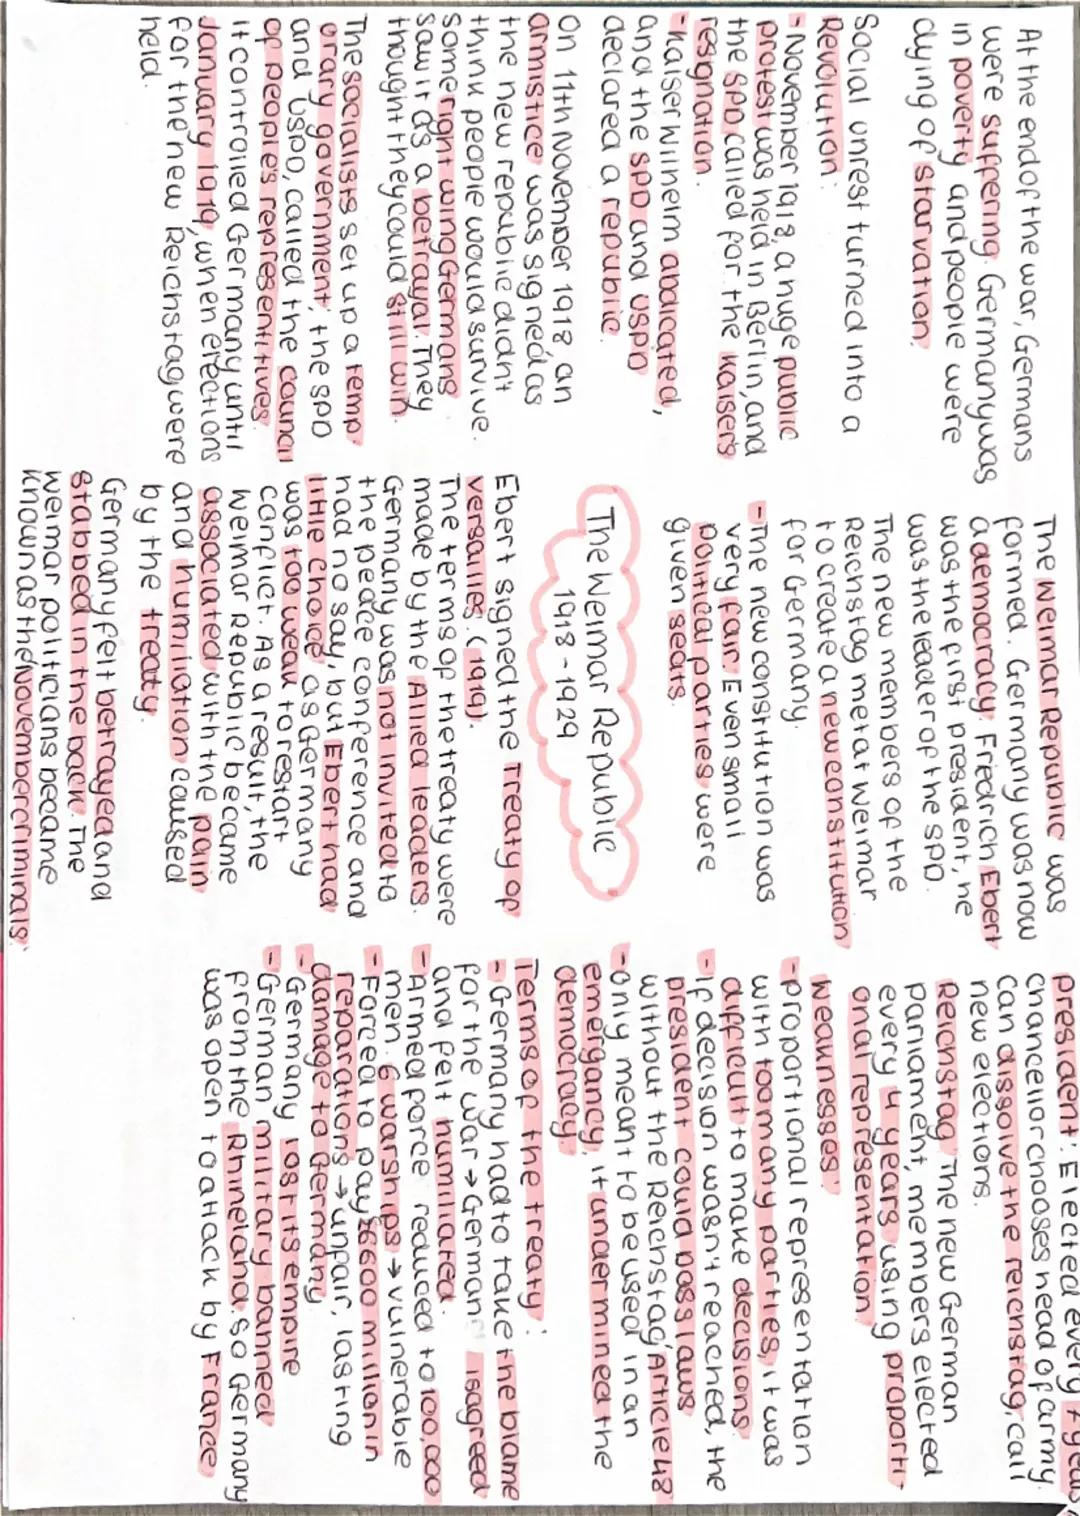 At the end of the war, Germans
were suffering. Germany was
in poverty and people were
dying of starvation.
Social unrest turned into a
Revolution:
- November 1918, a huge public
protest was held in Berlin, and
the SPD called for the Kaiser's
resignation.
- Kaiser Wilhelm abdicated,
and the SPD and USPD
declared a republic.
On 11th November 1918 an
armistice was signed as
the new republic didn't
think people would survive.
Some right wing Germans
saw it as a betrayal. They
thought they could still win.
The socialists set up a temp-
orary government; the SPD
and USPD, called the council
of people's representitives.
It controlled Germany until
January 1919, when elections
for the new Reichstag were
held.
The Weimar Republic was
formed. Germany was now
a democracy. Friedrich Ebert
was the first president, he
was the leader of the SPD.
The new members of the
Reichstag met at Weimar
to create a new constitution
for Germany.
- The new constitution was
very fair. Even small
political parties were
given seats.
The Weimar Republic
1918 - 1929
Ebert signed the Treaty of
Versailles. (1919).
The terms of the treaty were
made by the Allied leaders.
Germany was not invited to
the peace conference and
had no say, but Ebert had
little choice as Germany
was too weak to restart
conflict. As a result, the
Weimar Republic became
associated with the pain
and humiliation caused
by the treaty.
Germany felt betrayed and
stabbed in the back. The
Weimar politicians became
known as the 'November criminals'.
President: Elected every 7 years
chancellor chooses head of army.
Can dissolve the reichstag, call
new elections.
Reichstag The new German
Parliament, members elected
every 4 years using proporti-
onal representation.
Weaknesses:
- proportional representation
with too many parties, it was
difficult to make decisions
- If decision wasn't reached, the
president could pass laws
without the Reichstag, Article 48
- only meant to be used in an
emergancy, it undermined the
democracy.
Terms of the treaty:
- Germany had to take the blame
for the war → German isagreed
and felt humiliated.
- Armed force reduced to 100,000
men. 6 warships → vulnerable
- Forced to pay £6600 million in
reparations → unfair, lasting
damage to Germany.
- Germany lost its empire
- German military banned
from the Rhineland. so Germany
was open to attack by France